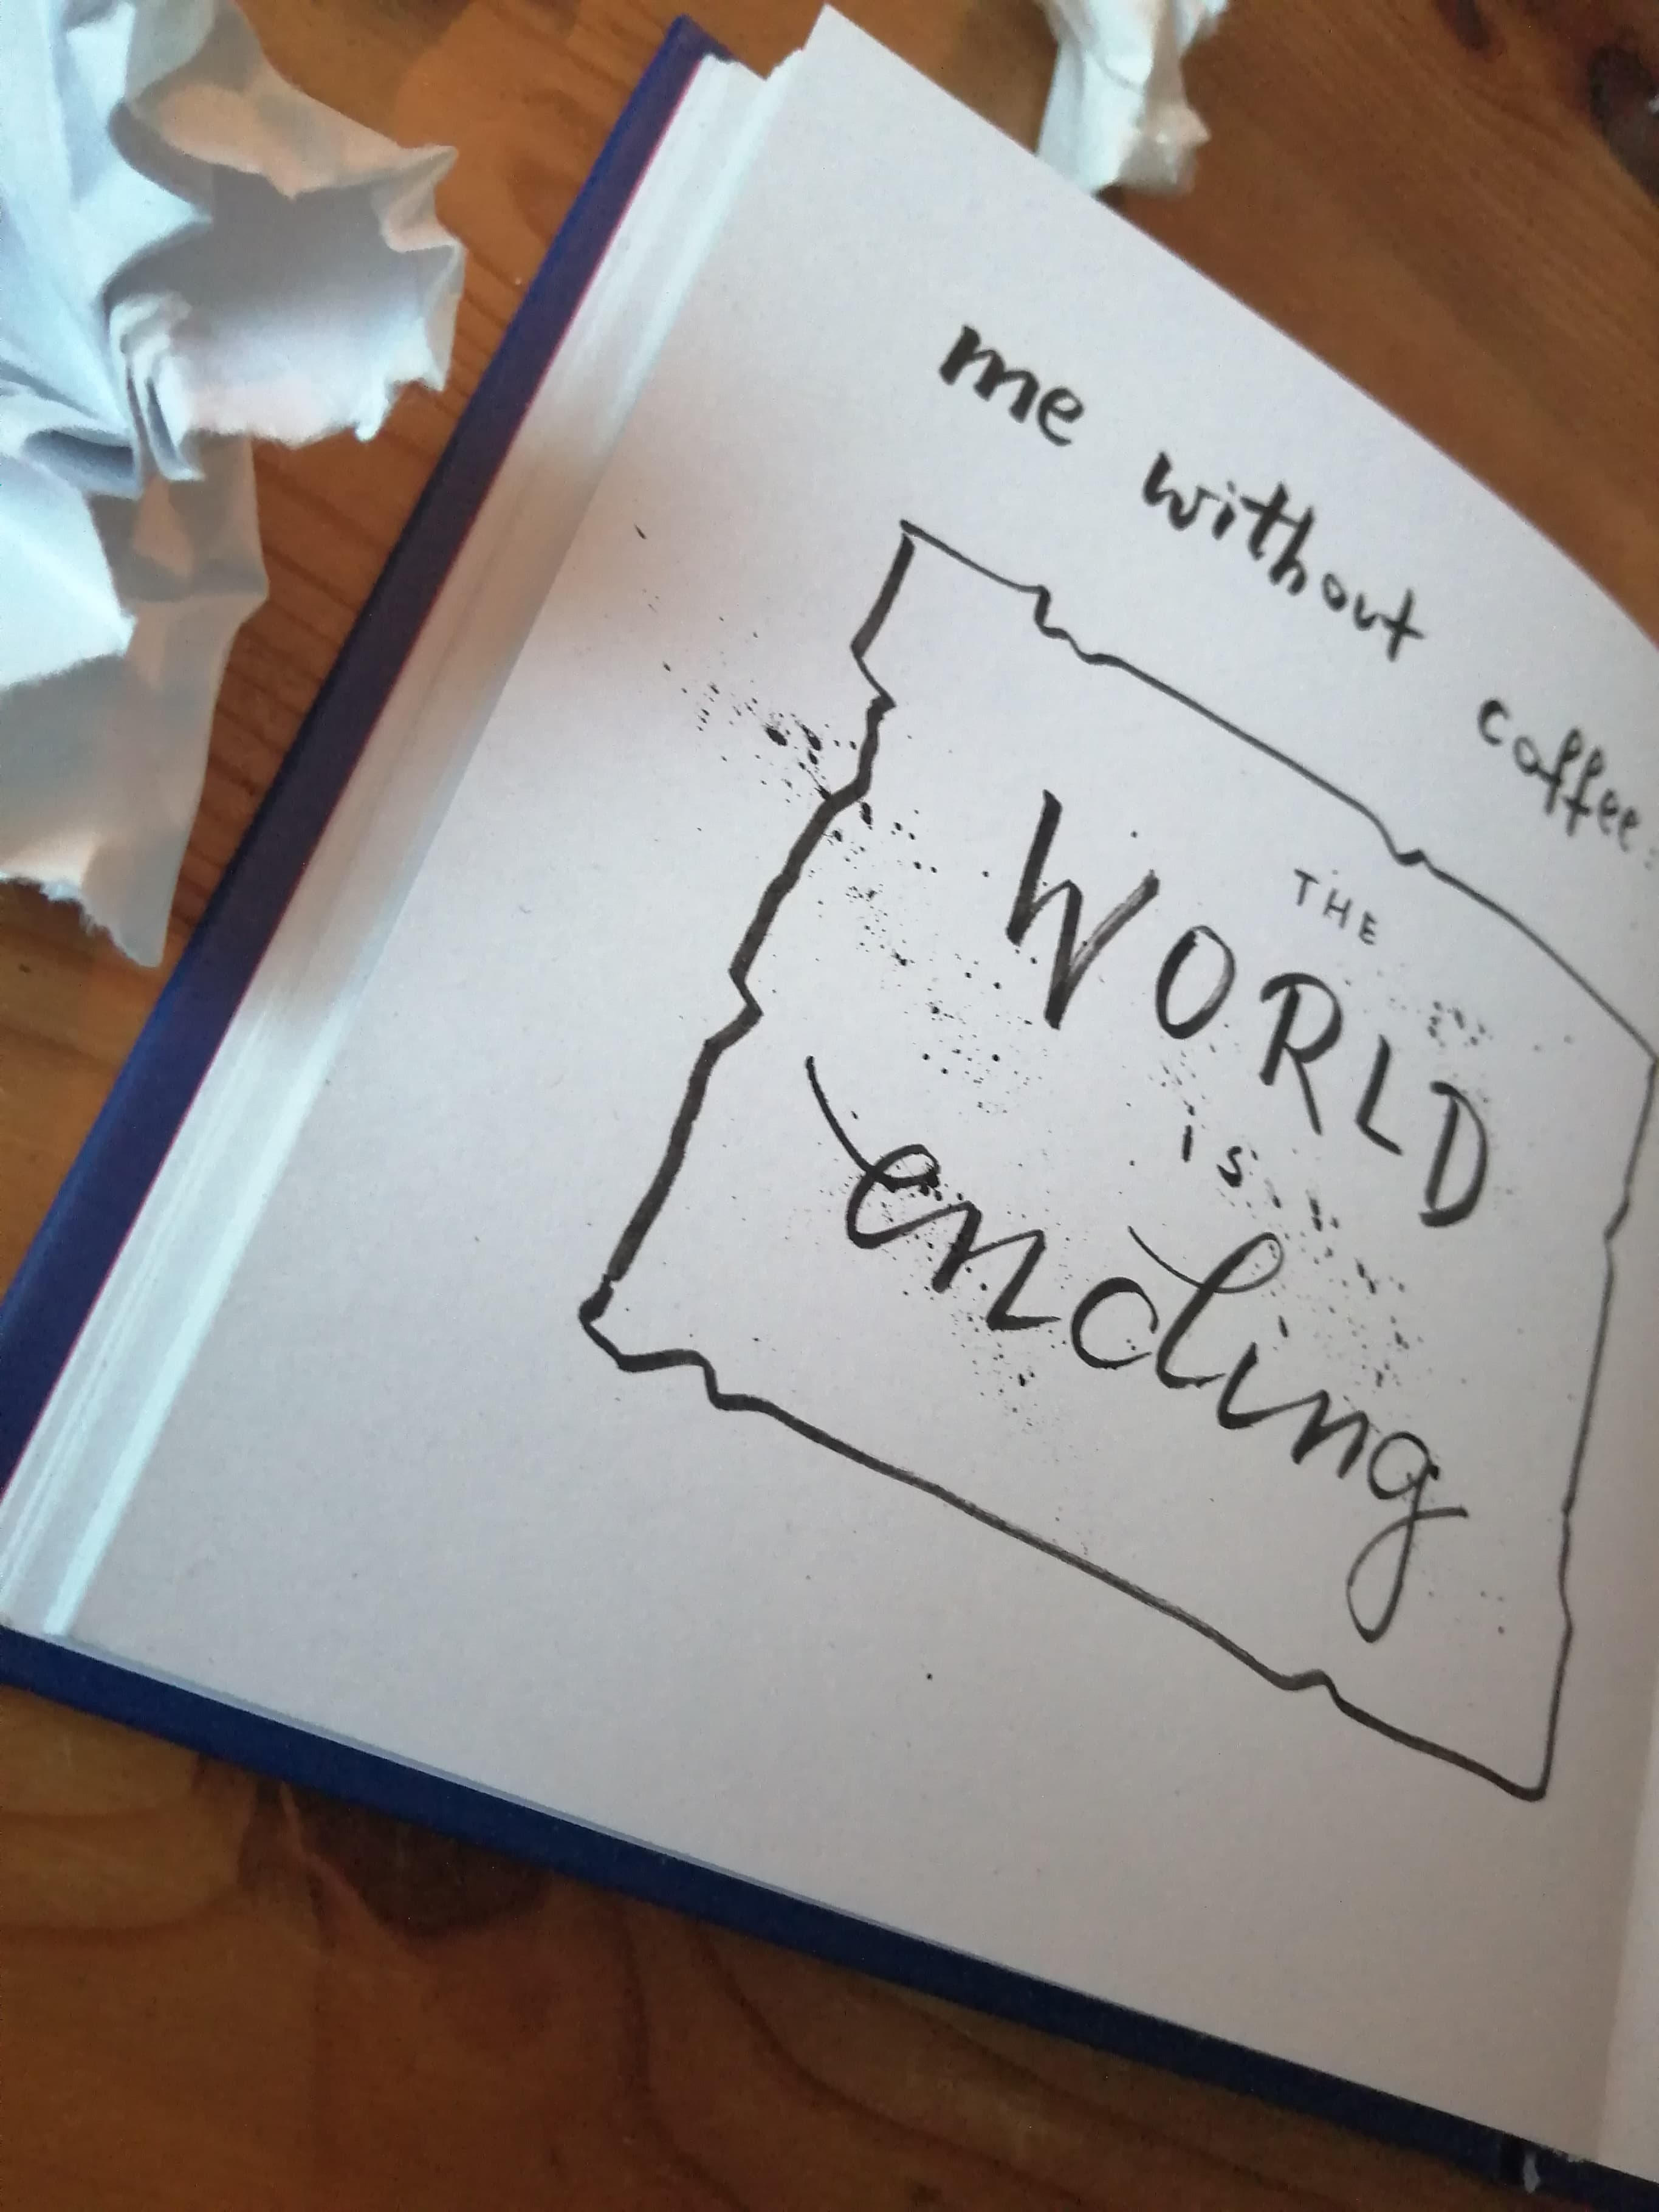 me without coffee:
THE
WORLD
is
ending